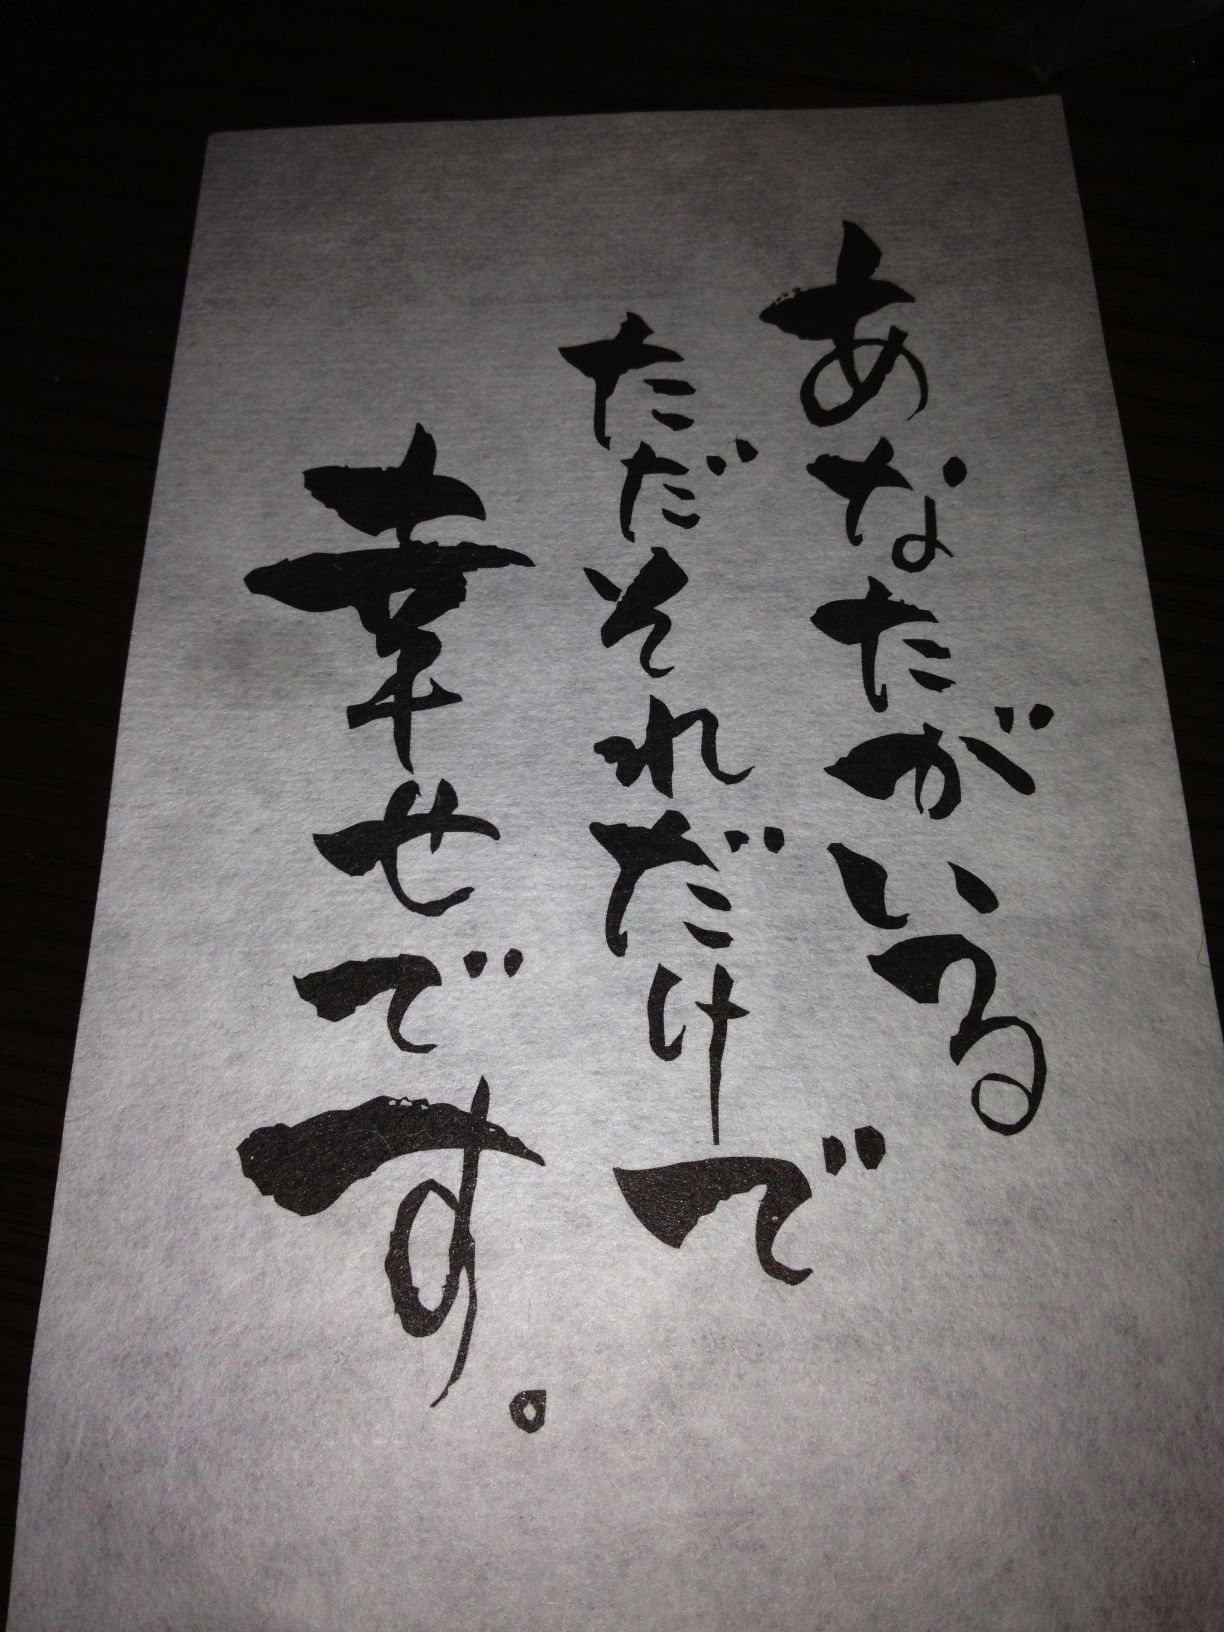 あなたがいる
ただそれだけで
幸せです。